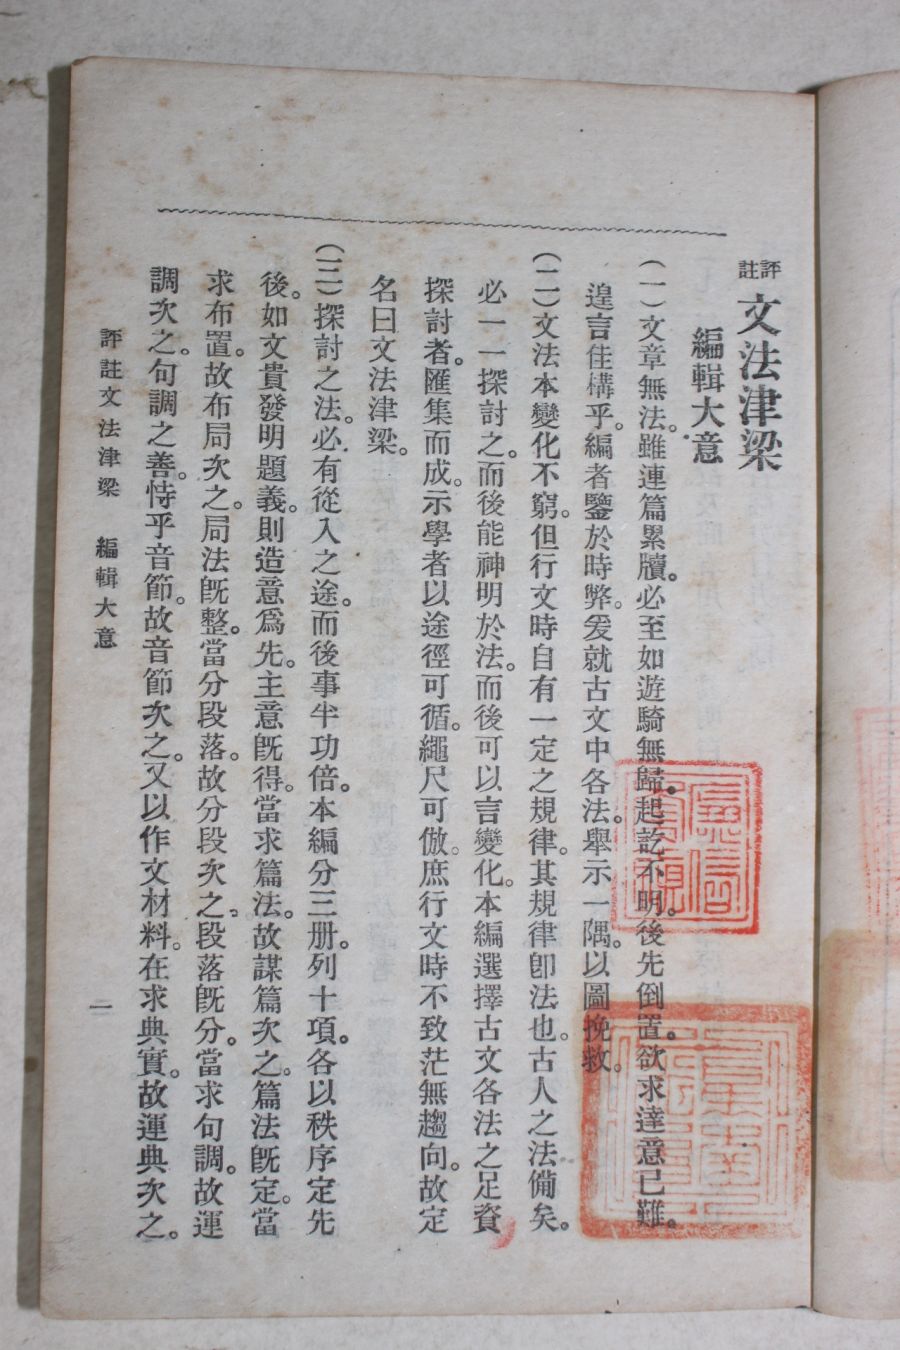 評註文法津梁
編輯大意
(一)文章無法。雖連篇累牘。必至如遊騎無歸。起訖不明。後先倒置。欲求達意已難。
遑言佳構乎。編者鑒於時弊。爰就古文中各法。舉示一隅。以圖挽救。
(二)文法本變化不窮。但行文時自有一定之規律。其規律卽法也。古人之法備矣。
必一一探討之。而後能神明於法。而後可以言變化。本編選擇古文各法之足資
探討者。匯集而成。示學者以途徑可循。繩尺可倣。庶行文時不致茫無趨向。故定
名曰文法津梁。
(三)探討之法。必有從入之途。而後事半功倍。本編分三册。列十項。各以秩序定先
後。如文貴發明題義。則造意爲先。主意旣得。當求篇法。故謀篇次之。篇法旣定。當
求布置。故布局次之。局法旣整。當分段落。故分段次之。段落旣分。當求句調。故運
調次之。句調之善。恃乎音節。故音節次之。又以作文材料。在求典實。故運典次之。
評註文法津梁 編輯大意 一